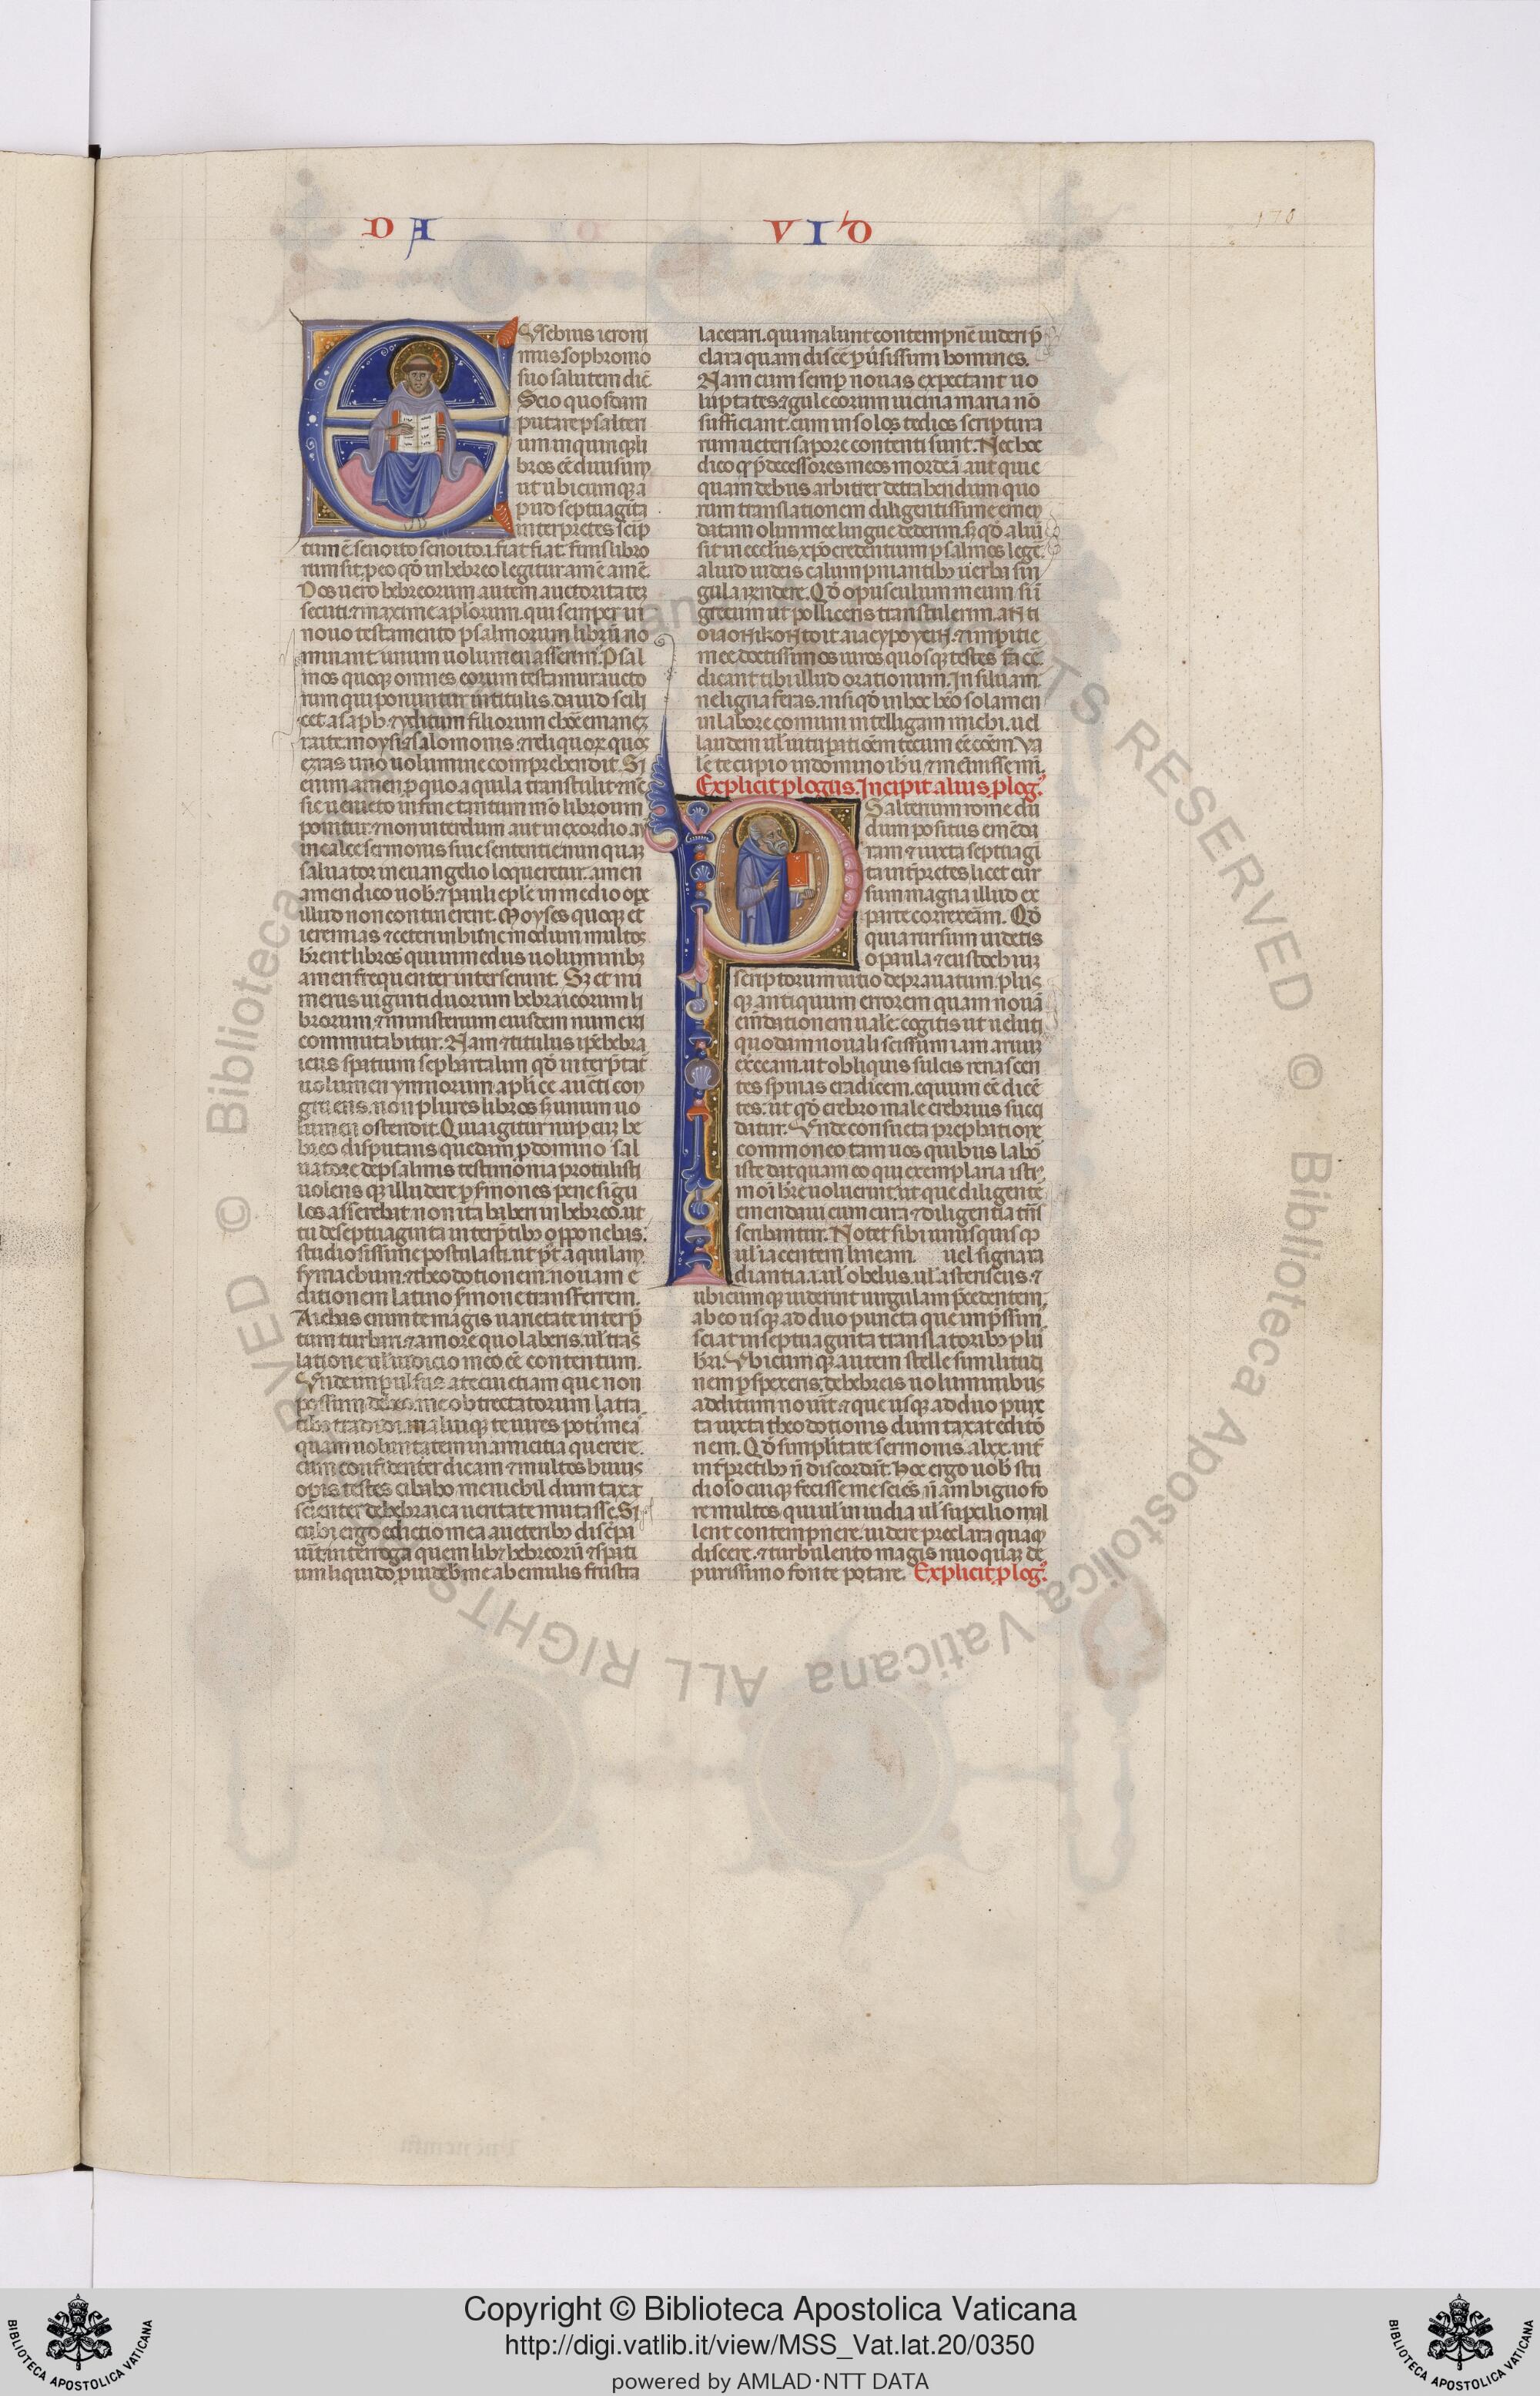 DA VID
170
EUsebius ieroni
mus sophronio
suo salutem dic̄
Scio quosdam
putare psalteri
um in quinq; li
bros eē diuisum
ut ubicumq; a
pud septuaginta
interpretes scip̄
tum ē senoito senoito .i. fiat fiat. finis libro
rum sit. p eo qđ in hebreo legitur amē amē.
Nos uero hebreorum autem auctoritatez
secuti. ⁊ maxime aplorum. qui semper in
nouo testamento psalmorum librū no
minant. unum uolumen asserim̄. Psal
mos quoq; omnes eorum testamur aucto
rum qui ponuntur in titulis. dauid scili
cet. asaph. ⁊ yditum filiorum chore emanez
raite moysi ⁊ salomonis. ⁊ reliquorz quos
ezras uno uolumine comprehendit. Si
enim amen p quo aquila transtulit
sic ueneto in fine tantum mō librorum
ponitur. ⁊ non interdum aut in exordio aut
in calce sermonis siue sententie nunquaz
saluator in euangelio loqueretur. amen
amen dico uob. ⁊ pauli eple in medio opr̄
illud non continerent. Moyses quoq; et
ieremias ⁊ ceteri in hunc modum multos
hrent libros qui in mediis uoluminibz
amen frequenter intersererent. Sz et nu
merus uiginti duorum hebraicorum li
brorum. ⁊ ministerium eiusdem numeri
commutabitur. Nam ⁊ titulus ipe hebra
icus spitium sephartalim qđ interptat̄
uolumen ymnorum. aplice aucti con
gruens. non plures libros sz unum uo
lumen ostendit. Quia igitur nup cuz he
breo disputans quedam p domino sal
uatore de psalmis testimonia protulisti
uolens q; illudere p smones pene singu
los asserebat non ita haberi in hebreo. ut
tu de septuaginta interptibɔ opponebas.
studiosissime postulasti. ut pt̄ aquilam.
symachum. ⁊ theodotionem. nouam e
ditionem latino smone transferrem.
Aiebas enim te magis uarietate interp̄
tum turbari. ⁊ amore quo laberis. ul tras
latione ul iudicio meo eē contentum.
Vnde impulsus a te cui etiam que non
possum debeo me obtrectatorum latra
tibɔ tradidi. malui q; te uires poti mea
quam uoluntatem in amicitia querere.
cum confidenter dicam ⁊ multos huius
opis testes citabo. me nichil dum taxat
scienter de hebraica ueritate mutasse. Si
cubi ergo editio mea a ueteribɔ discrpa
uit. interroga quem libz hebreorū ⁊ spiti
um liquido puidebis me ab emulis frustra
lacerari. qui malunt contempn̄e uideri p̄
clara quam discē puisissimi homines.
Nam cum semp nouas expectant uo
luptates. ⁊ gule eorum uicina maria nō
sufficiant. cum in solos tedios scriptura
rum ueteri sapore contenti sunt. Nec hoc
dico q p̄decessores meos mordeā. aut quic
quam de hiis arbitrer detrahendum quo
rum translationem diligentissime emen
datam olim mee lingue dederim. sz qđ aliū
sit in eccliis xp̄o credentium psalmos leḡe.
aliud iudeis calumpniantibɔ uerba sin
gula rendere. Qđ opusculum meum si ī
grecum ut polliceris transtulerim. antι
oιaonikon toιt aιacypoycin. ⁊ impitie
mee doctissimos uiros quosq; testes fac̄e.
dicam tibi illud orationum. In siluam
ne ligna feras. nisi qđ in hoc hēo solamen
in labore comuni intelligam michi. uel
laudem ul uitupatioēm tecum eē cōem. Va
le te cupio in domino ihu. ⁊ mēinisse mī.
Explicit plogus. Incipit alius plog.
PSalterium rome du
dum positus emēda
ram ⁊ iuxta septuagi
ta intpretes licet cur
sim magna illud ex
parte correxeram. Qđ
quia rursum uidetis
o paula ⁊ eustochiuz
scriptorum uitio deprauatum. plus
q; antiquum errorem quam nouā
emēdationem uale. cogitis ut ueluti
quodam nouali scissum iam aruuz
exceam. ut obliquis sulcis renascen
tes spinas eradicem. equum eē dicē
tes. ut qđ crebro male crebrius succi
datur. Vnde consueta prephatione
commoneo tam uos quibus labo
iste dat̄ quam eo qui exemplaria isti
moī hre uoluerint. ut que diligente
emendaui cum cura ⁊ diligentia tns̄
scribantur. Notet sibi unusquisq;
ul iacentem lineam. uel signara
diantia .i. ul obelus. ul astericus. ⁊
ubicumq; uiderint uirgulam p̄cedentem.
ab eo usq; ad duo puncta que imp̄ssim̄.
sciat in septuaginta translatoribɔ plu
hri. Vbicumq; autem stelle similitudi
nem pspexeris. de hebreis uoluminibus
additum nouīt. ⁊ que usq; ad duo punc
ta iuxta theodotionis dum taxat editō
nem. Qđ simplitate sermonis. alxx. int̄
intpretibɔ n̄ discordat̄. Hoc ergo uob̄ stu
dioso cuiq; fecisse me sciēs n̄ ambiguo fo
re multos. qui ul inuidia ul supcilio mal
lent contempnere. uidere preclara quaq
discere. ⁊ turbulento magis riuo quaz de
purissimo fonte potare. Explicit plog.
© Biblioteca Apostolica Vaticana ALL RIGHTS RESERVED
Copyright © Biblioteca Apostolica Vaticana
http://digi.vatlib.it/view/MSS_Vat.lat.20/0350
powered by AMLAD·NTT DATA
BIBLIOTECA APOSTOLICA VATICANA
BIBLIOTECA APOSTOLICA VATICANA